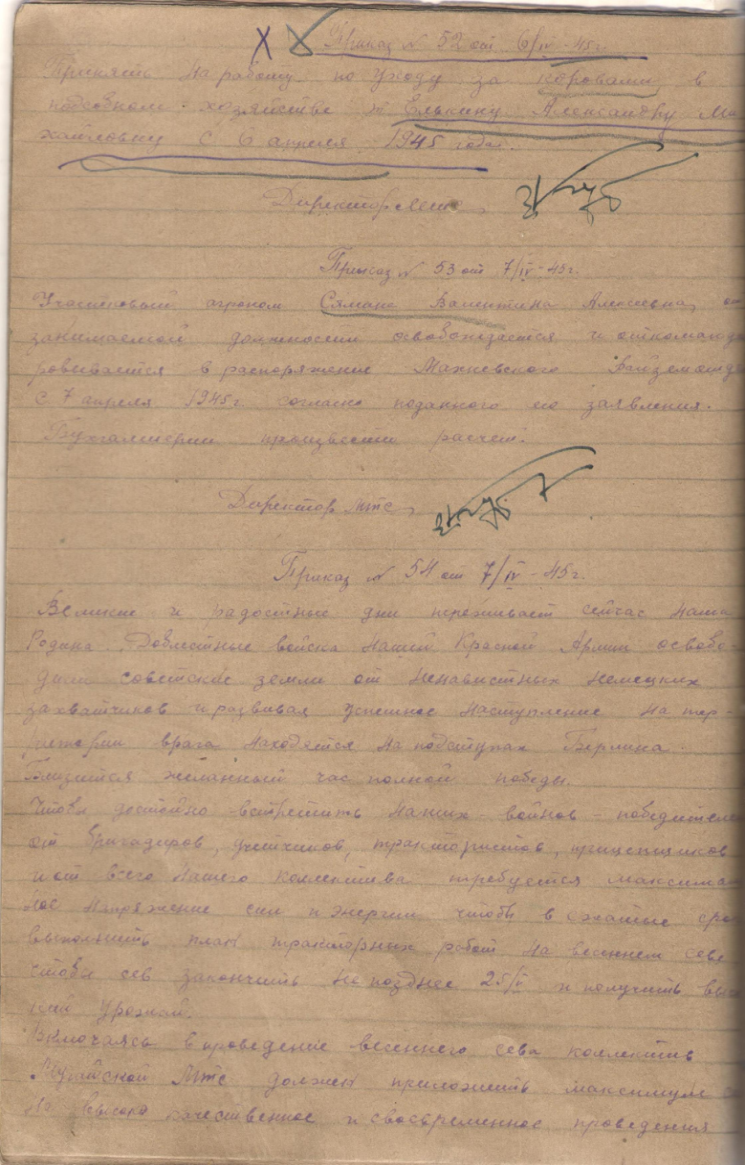 Приказ N 52 от 6/IV-45г.
Принять на работу по уходу за коровами в
подсобном хозяйстве т. Елькину Александру Ми
хайловну с 6 апреля 1945 года.
Директор мтс
Приказ N 53 от 7/IV-45г.
Участковый агроном Валентина Алексеевна, от
занимаемой должности освобождается и откоманди
ровывается в распоряжение Махневского Райземотде
с 7 апреля 1945г. согласно поданного ею заявления.
Бухгалтерии произвести расчет.
Директор мтс
Приказ N 54 от 7/IV-45г.
Великие и радостные дни переживает сейчас наша
Родина. Доблестные войска нашей Красной Армии освобо-
дили советские земли от ненавистных немецких
захватчиков и развивая успешное наступление на тер-
ритории врага находятся на подступах Берлина.
Близится желанный час полной победы.
Чтобы достойно встретить наших войнов - победителей
от бригадиров, учетчиков, трактористов, прицепщиков
и от всего нашего коллектива требуется максималь
ное напряжение сил и энергии чтобы в сжатые сро
выполнить план тракторных работ на весеннем севе
чтобы сев закончить не позднее 25/V и получить высо
кий урожай.
Включаясь в проведение весеннего сева коллектив
мтс должен приложить максимум
на высоко качественное и своевременное проведения